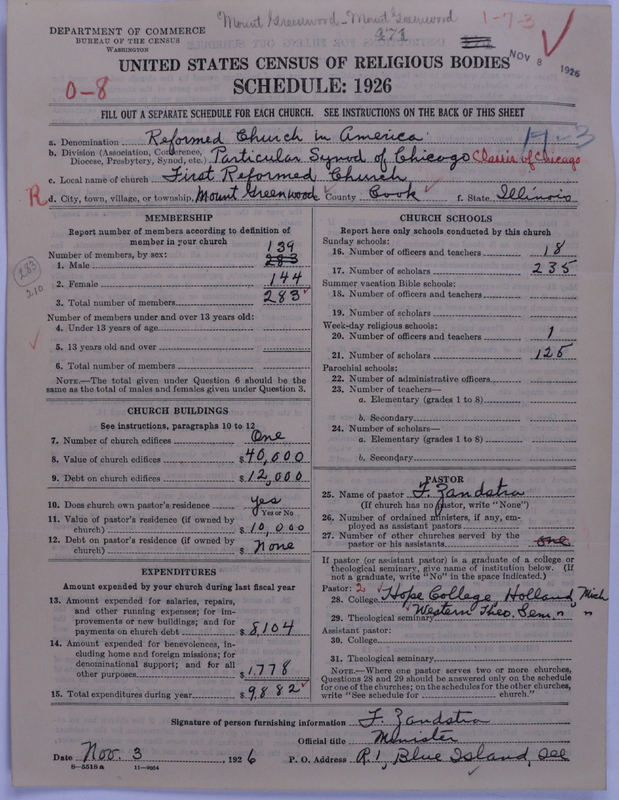 Mount Greenwood - Mount Greenwood
1-7-3
DEPARTMENT OF COMMERCE
BUREAU OF THE CENSUS
WASHINGTON
471
NOV 8 1926
UNITED STATES CENSUS OF RELIGIOUS BODIES
SCHEDULE: 1926
0-8
FILL OUT A SEPARATE SCHEDULE FOR EACH CHURCH. SEE INSTRUCTIONS ON THE BACK OF THIS SHEET
a. Denomination Reformed Church in America
b. Division (Association, Conference, Diocese, Presbytery, Synod, etc.) Particular Synod of Chicago Classis of Chicago
c. Local name of church First Reformed Church
R d. City, town, village, or township, Mount Greenwood County Cook f. State Illinois
MEMBERSHIP
Report number of members according to definition of
member in your church
Number of members, by sex: 139
1. Male 283
2. Female 144
3. Total number of members 283
283
210
Number of members under and over 13 years old:
4. Under 13 years of age
5. 13 years old and over
6. Total number of members
NOTE.—The total given under Question 6 should be the
same as the total of males and females given under Question 3.
CHURCH BUILDINGS
See instructions, paragraphs 10 to 12
7. Number of church edifices One
8. Value of church edifices $40,000
9. Debt on church edifices $12,000
10. Does church own pastor's residence yes
Yes or No
11. Value of pastor's residence (if owned by
church) $10,000
12. Debt on pastor's residence (if owned by
church) $None
EXPENDITURES
Amount expended by your church during last fiscal year
13. Amount expended for salaries, repairs,
and other running expenses; for im-
provements or new buildings; and for
payments on church debt $8104
14. Amount expended for benevolences, in-
cluding home and foreign missions; for
denominational support; and for all
other purposes $1778
15. Total expenditures during year $9882
CHURCH SCHOOLS
Report here only schools conducted by this church
Sunday schools:
16. Number of officers and teachers 18
17. Number of scholars 235
Summer vacation Bible schools:
18. Number of officers and teachers
19. Number of scholars
Week-day religious schools:
20. Number of officers and teachers 1
21. Number of scholars 125
Parochial schools:
22. Number of administrative officers
23. Number of teachers—
a. Elementary (grades 1 to 8)
b. Secondary
24. Number of scholars—
a. Elementary (grades 1 to 8)
b. Secondary
PASTOR
25. Name of pastor F. Zandstra
(If church has no pastor, write "None")
26. Number of ordained ministers, if any, em-
ployed as assistant pastors
27. Number of other churches served by the
pastor or his assistants one
If pastor (or assistant pastor) is a graduate of a college or
theological seminary, give name of institution below. (If
not a graduate, write "No" in the space indicated.)
Pastor: 2
28. College Hope College, Holland, Mich
29. Theological seminary Western Theo. Sem. " "
Assistant pastor:
30. College
31. Theological seminary
NOTE.—Where one pastor serves two or more churches,
Questions 28 and 29 should be answered only on the schedule
for one of the churches; on the schedules for the other churches,
write "See schedule for church."
Signature of person furnishing information F. Zandstra
Official title Minister
Date Nov. 3, 1926 P. O. Address R.1, Blue Island, Ill
8-5518a 11-9054